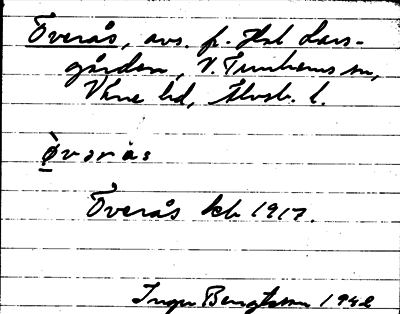 Överås, avs. fr. Hst Lars-
gården, V. Tunhems sn,
Väne hd, Älvsb. l.
ø̀vəråːs
Överås kb 1917.
Inger Bengtsson 1942